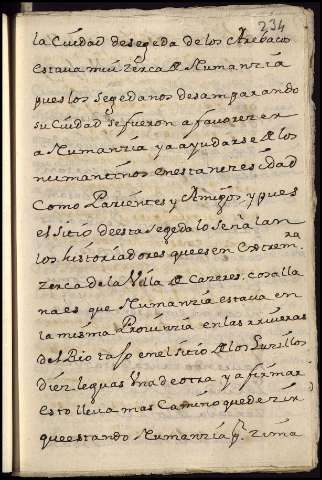 234
la Ciudad de segeda de los Arebacos
estava mui zerca de Numanzia
pues los segedanos desamparando
su Ciudad se fueron a favorezer
a Numanzia ya ayudarse de los
numantinos en esta nezesidad
como Parientes y Amigos, y pues
el sitio de esta segeda lo señalan
los historiadores que es en Extrem.ra
zerca de la Villa de Cazeres, cosa lla
na es que Numanzia estava en
la misma Provinzia en las rriveras
del Rio taJo en el sitio de los Lusillos
diez leguas Una de otra y afirmar
esto lleva mas Camino que dezir
que estando Numanzia q.e zima